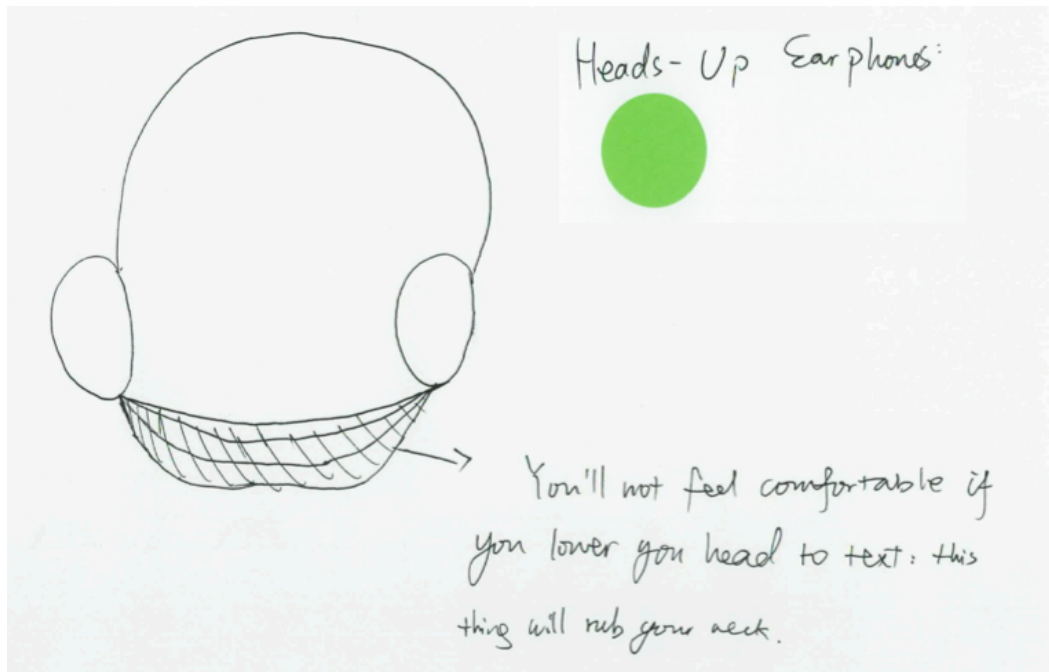 Heads-Up Earphones:
You'll not feel comfortable if
you lower you head to text: this
thing will rub your neck.